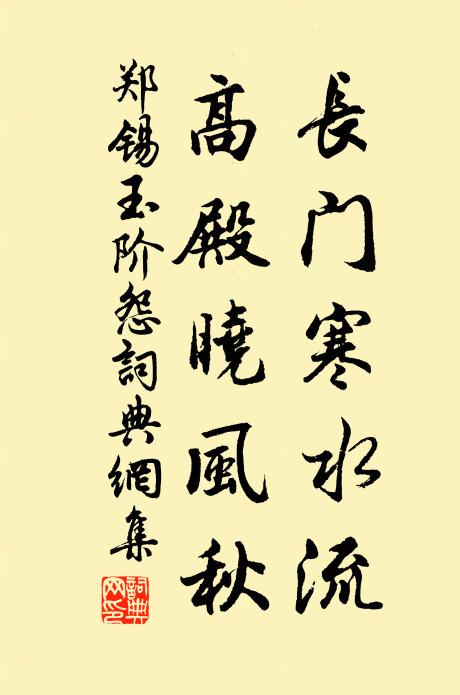 長门寒水流
高殿曉風秋
郑锡玉阶怨詞典網集
詞典网印